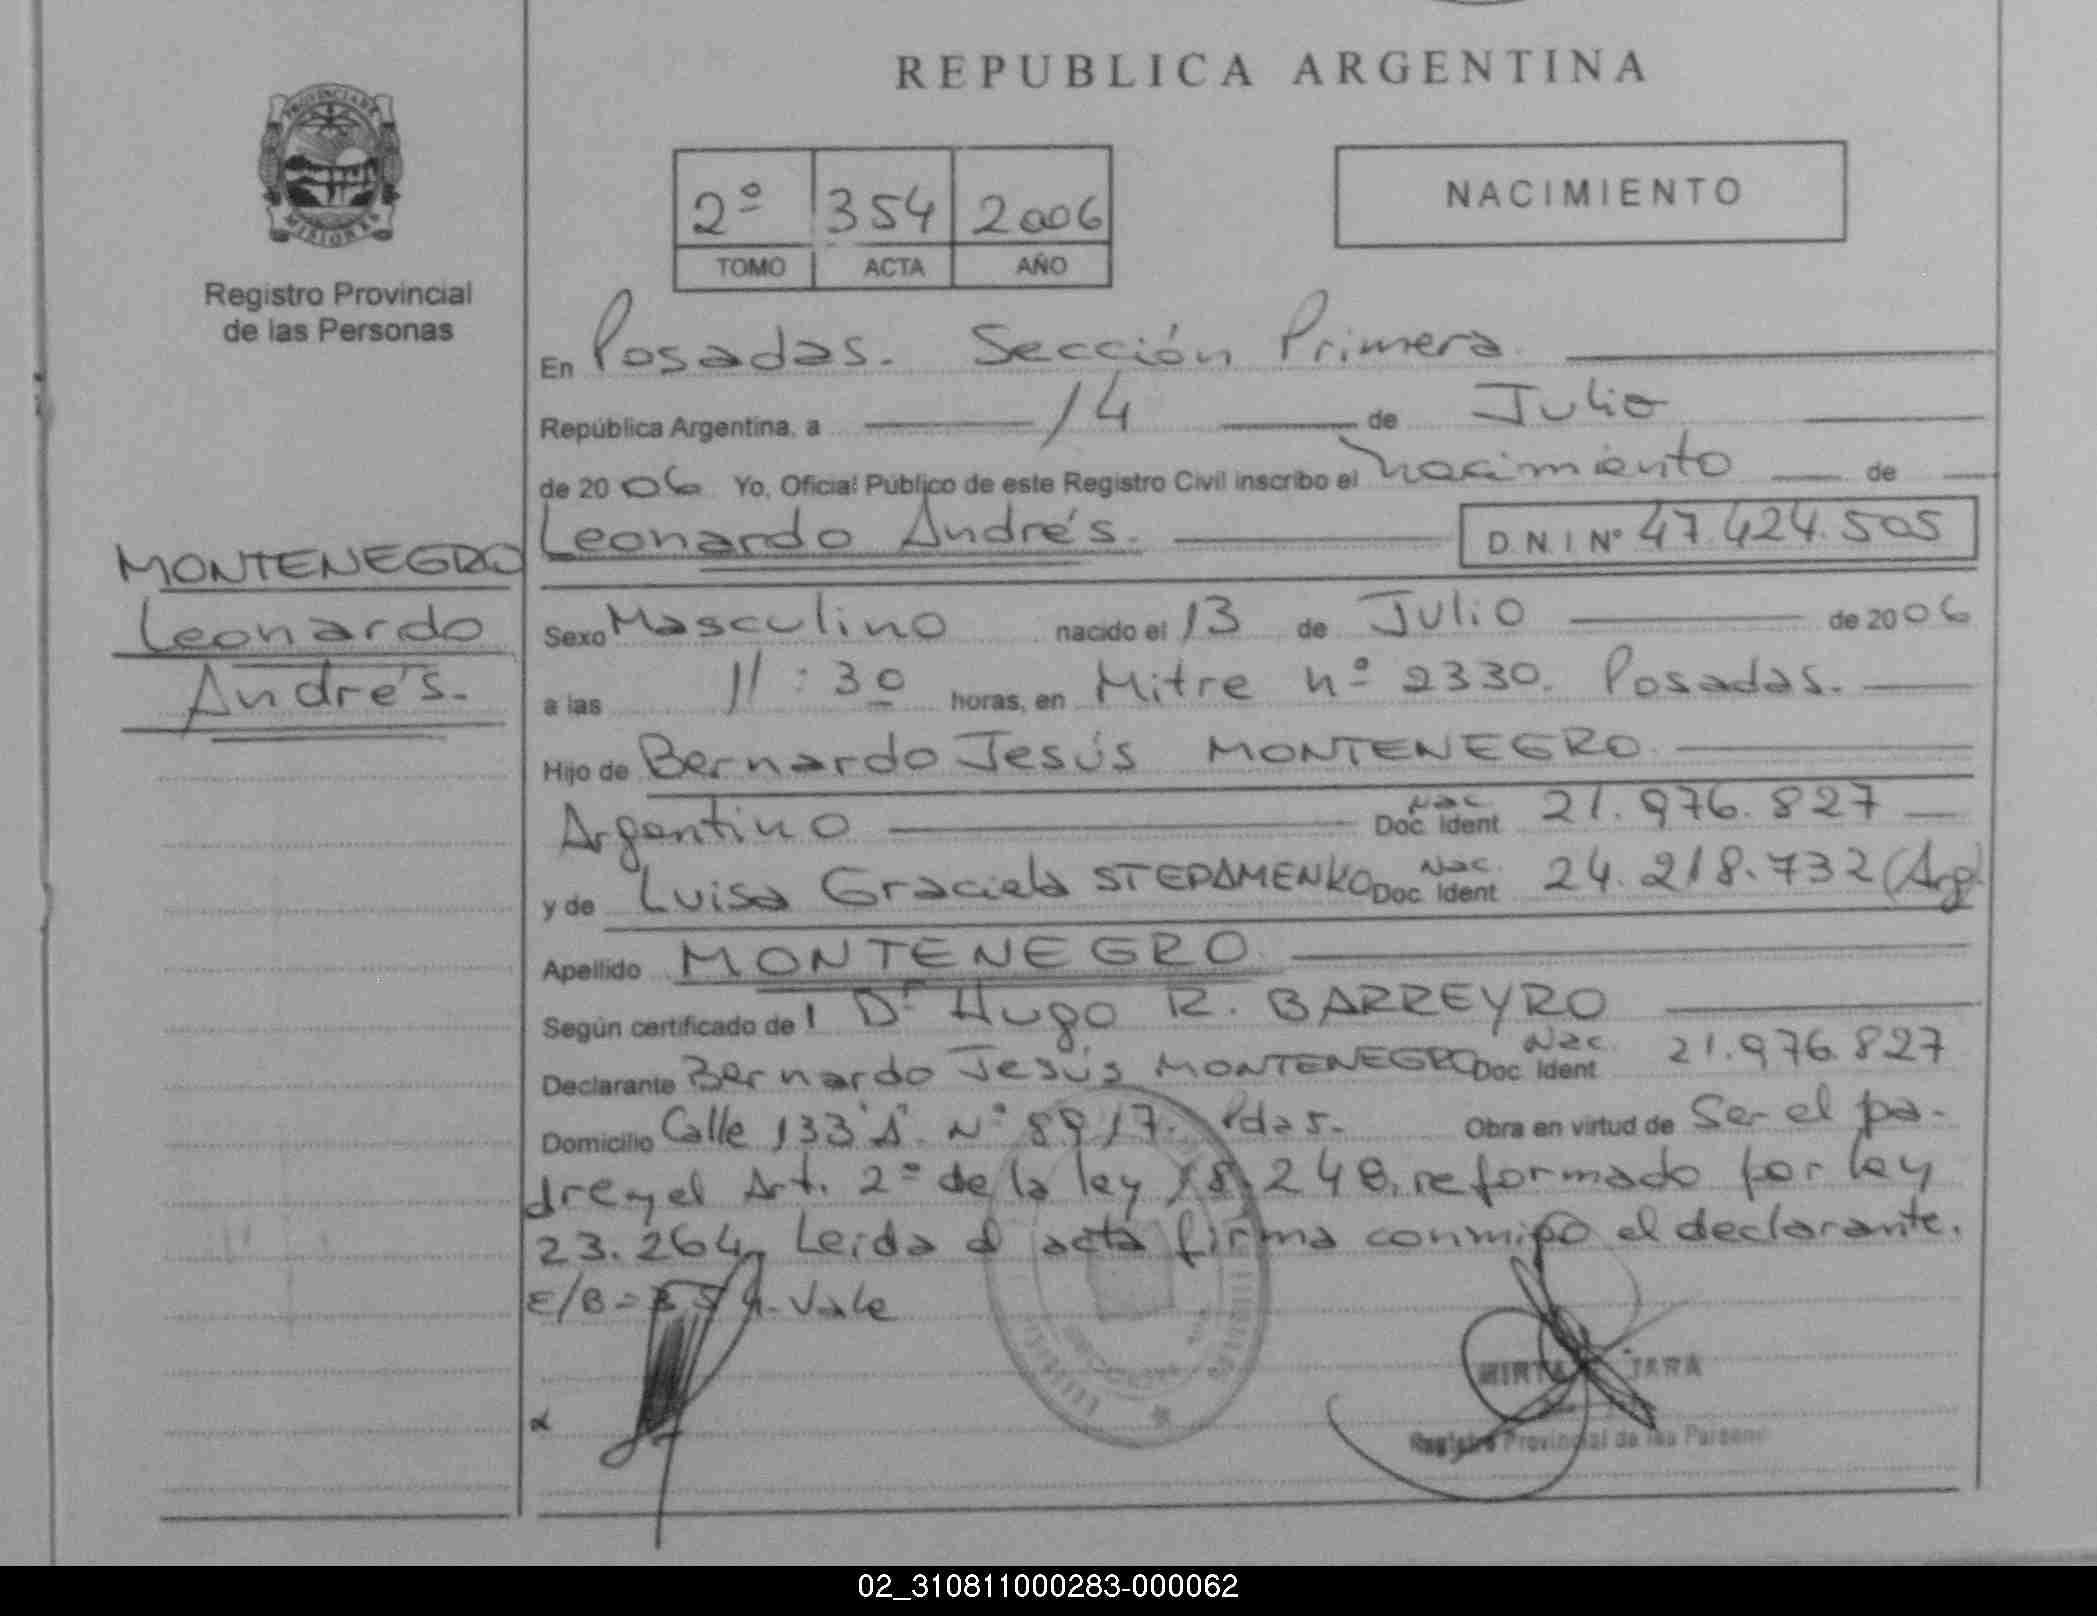 REPUBLICA ARGENTINA
PROVINCIA DE
MISIONES
Registro Provincial
de las Personas
2º 354 2006
TOMO ACTA AÑO
NACIMIENTO
En Posadas. Sección Primera.
República Argentina, a 14 de Julio
de 2006 Yo, Oficial Público de este Registro Civil inscribo el nacimiento de
Leonardo Andrés. D.N.I Nº 47.424.505
MONTENEGRO
Leonardo
Andrés.
Sexo Masculino nacido el 13 de Julio de 2006
a las 11:30 horas, en Mitre nº 2330. Posadas.
Hijo de Bernardo Jesús MONTENEGRO.
Argentino Nac. Doc. Ident 21.976.827
y de Luisa Graciela Nac. Doc. Ident 24.218.732 (Arg)
Apellido MONTENEGRO.
Según certificado de l Dr Hugo R. BARREYRO
Declarante Bernardo Jesús MONTENEGRO Nac. Doc. Ident 21.976.827
Domicilio Calle 133 "A". Nº 8917. Pdas. Obra en virtud de Ser el pa-
dre y el Art. 2º de la ley 18.248, reformado por ley
23.264. Leida el acta firma conmigo el declarante.
E/B = 354. Vale
MIRTA JARA
Registro Provincial de las Personas
02_310811000283-000062